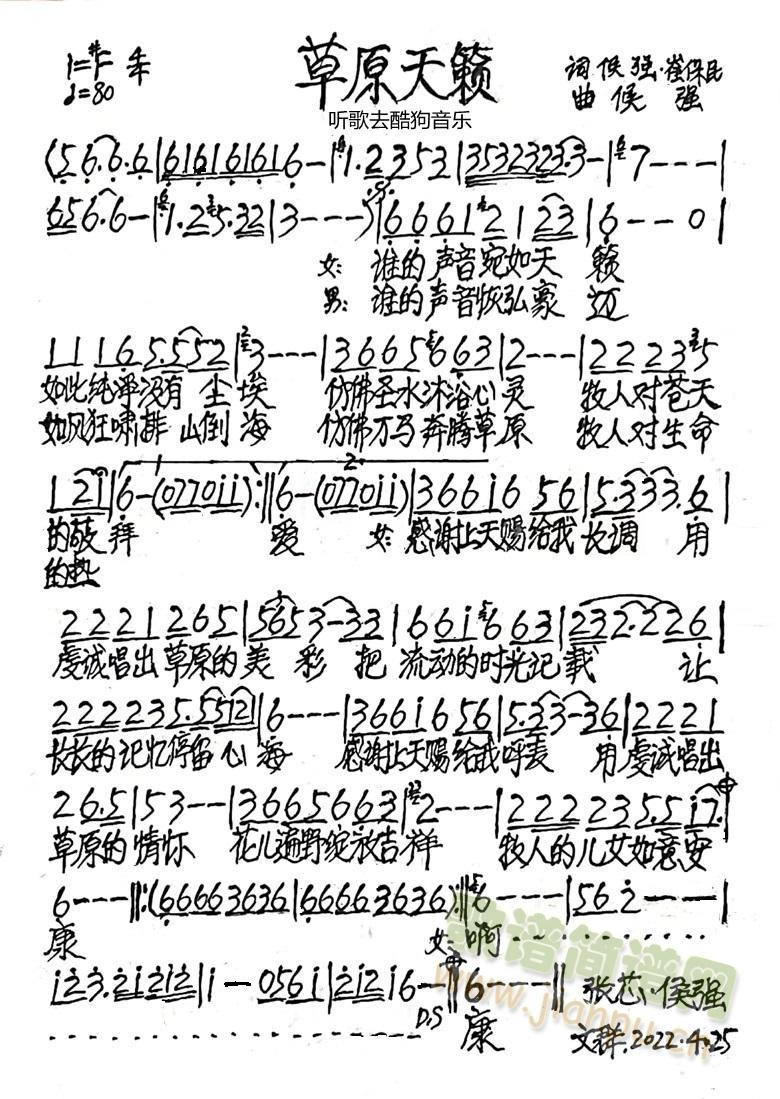 草原天籁
1=#F 4/4
♩=80
词 侯强·崔保民
曲 侯强
听歌去酷狗音乐
(5 6.6.6|61616161 6-|1.2353|3532323.3-|7---|
656.6-|1.25.32|3---)|6661 2123|6--0|
女: 谁的声音宛如天 籁
男: 谁的声音恢弘豪迈
1116 5.552|3---|3665 6663|2---|22235
如此纯净没有尘埃 仿佛圣水沐浴心灵 牧人对苍天
如风狂啸排山倒海 仿佛万马奔腾草原 牧人对生命
1 2i|6-(077011):||6-(077011)|366i6 56|5.333.6|
的敬拜 爱 女: 感谢上天赐给我长调 用
的热
2221 265|5653-33|66i6 663|232.226|
虔诚唱出草原的美彩 把 流动的时光记载 让
222235.5512|6---|366i656|5.33-36|2221
长长的记忆停留心海 感谢上天赐给我呼麦 用虔诚唱出
26.5|53--|3665663|2---|222235.5i7.|
草原的情怀 花儿遍野绽放吉祥 牧人的儿女如意安
6---||:(66663636|66663636):||6---|562---|
康 女: 啊
i23.2i2i2|i--056i|2i2i6-||6---||
D.S 康
张芯·侯强
文群.2022.4.25
歌谱简谱网
www.jianpu.cn